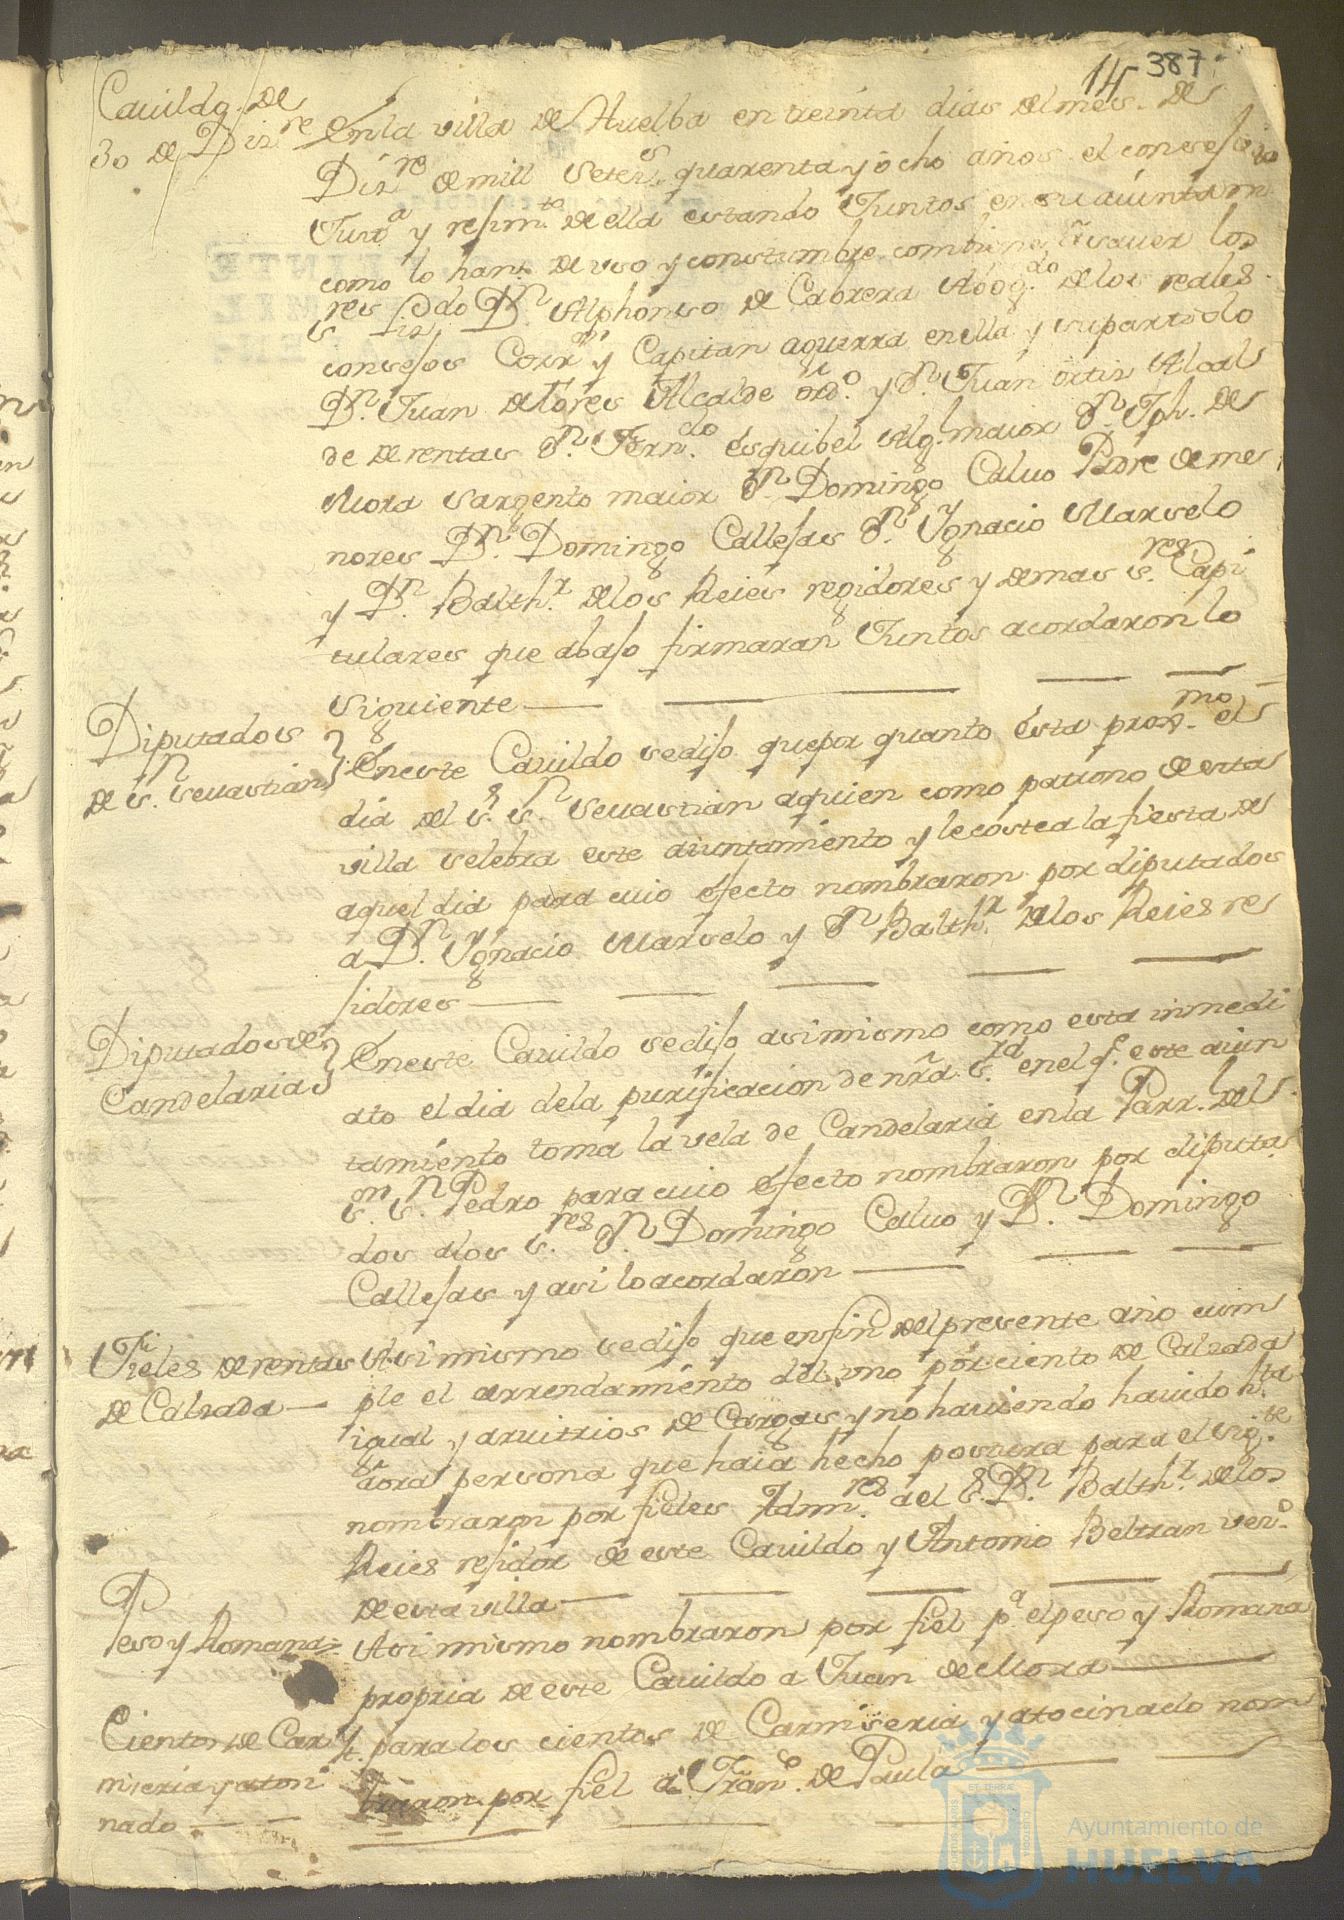 14 387
Cauildo. de
30 de Diz.re
En la villa de Huelba en treinta dias del mes. de
Diz.re de mill Setez.s quarenta y ocho años el consejo
Just.a y rejim.to de ella estando Juntos en su aiuntam.to
como lo han. de vso y constumbre combiene a sauer los
s.res Liz.do D.n Alphonso de Cabrera Abog.do de los reales
consejos Corr.or y Capitan aguerra en ella y su partido
D.n Juan de flores Alcalde ord.o y D.n Juan ortiz Alcal
de de rentas D.n Fern.do esquibel Alg.l maior D.n Jph. de
Mora sargento maior D.n Domingo Caluo Padre de me
nores D.n Domingo Callejas D.n Ygnacio Marselo
y D.n Balth.r de los Reies regidores y demas s.res Capi
tulares que abajo firmaran Juntos acordaron lo
siguiente
Diputados
de s.n seuastian
En este Cauildo se dijo que por quanto esta prox.mo el
dia del s.r s.n Seuastian a quien como patrono de esta
villa selebra este aiuntamiento y le costea la fiesta de
aquel dia para cuio efecto nombraron por diputados
a D.n Ygnacio Marselo y D.n Balth.r de los Reies re
jidores
Diputados de
Candelaria
En este Cauildo se dijo asimismo como esta inmedi
ato el dia dela purificacion de nra s.ra en el q.e este aiun
tamiento toma la vela de Candelaria en la Parr.l del
s.or s.n Pedro para cuio efecto nombraron por diputa
dos a los s.res D.n Domingo Caluo y D.n Domingo
Callejas y asi lo acordaron
Fieles de rentas
de Calzada
Asi mismo se dijo que en fin del presente año cum
ple el arrendamiento del uno por ciento de Calzada
igual y aruitrios de Cargas y no hauiendo hauido h.ta
aora persona que haia hecho postura para el sig.te
nombraron por fieles Adm.res a el s.r D.n Balth.r de los
Reies rejidor de este Cauildo y Antonio Beltran vez.o
de esta villa
Peso y Romana
Asi mismo nombraron por fiel p.a el peso y Romana
propria de este Cauildo a Juan de Mora
Cientos de Car
niseria y atosi
nado
Yt. para los cientos de Carniseria y atocinado nom
braron por fiel a Fran.co de Paula
Ayuntamiento de
HUELVA